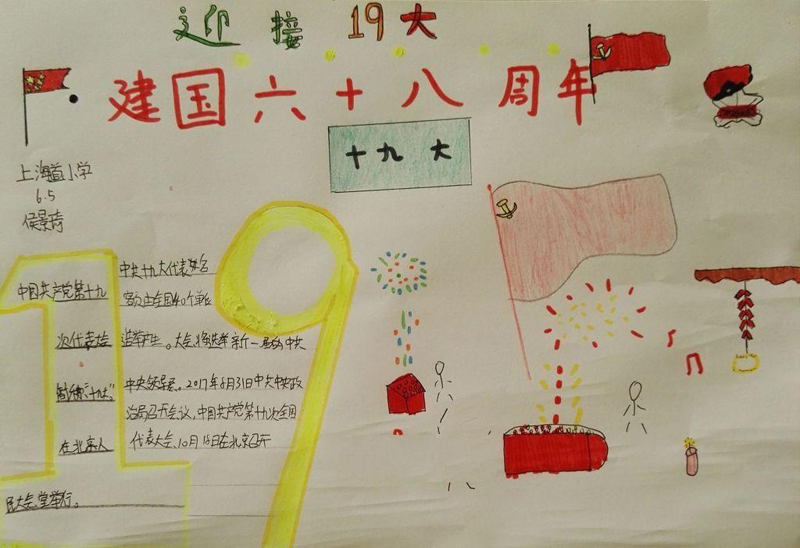 迎接19大
建国六十八周年
十九大
上海道小学
6.5
侯景琦
中国共产党第十九
次代表
"十九大"
在北京人
民大会堂举行。
中共十九大代表
全国40个单位
选举产生。大会将选举新一届的中共
中央领导。2017年8月31日中共中央政
治局召开会议,中国共产党第十九次全国
代表大会,10月18日在北京召开